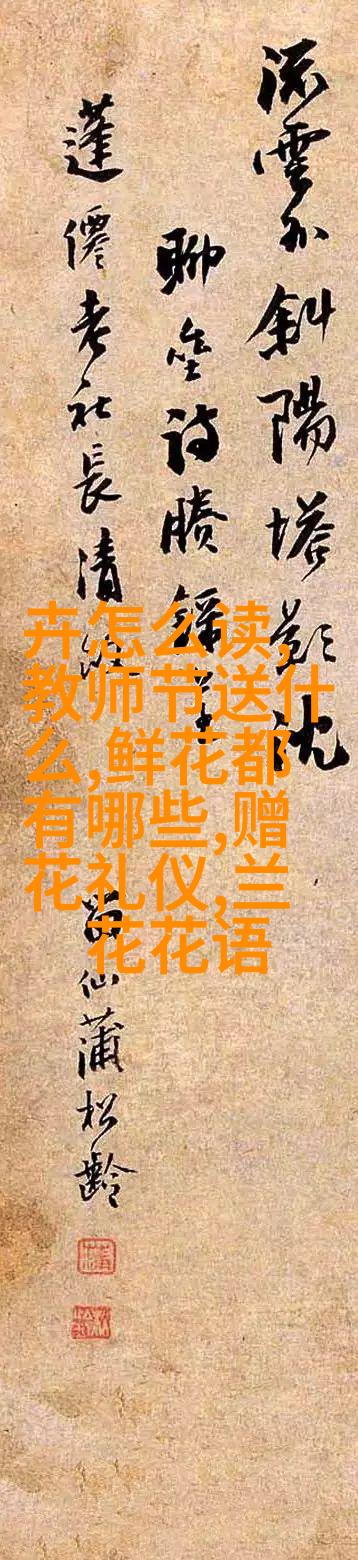 流雲外斜陽塔影沈
聊坐詩賸
蓬僊老社長清
留仙蒲松齡
卉怎么读,
教师节送什
么,鲜花都
有哪些,赠
花礼仪,兰
花花语